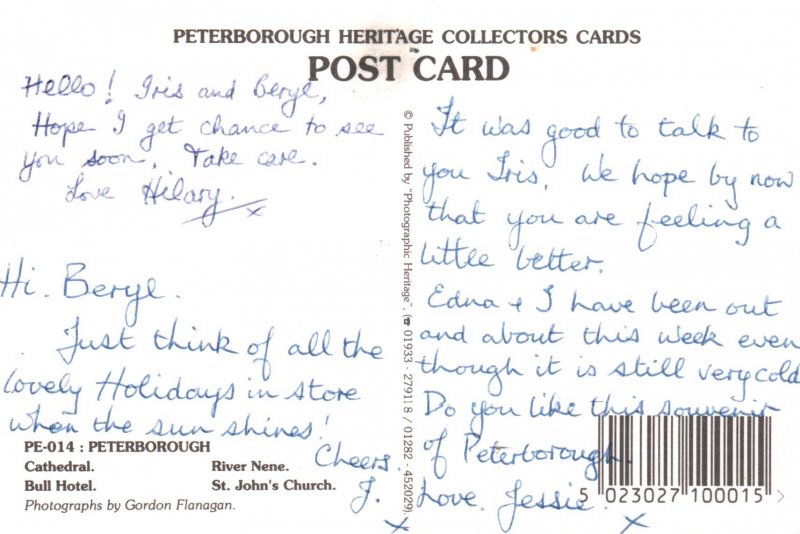 PETERBOROUGH HERITAGE COLLECTORS CARDS
POST CARD
Hello! Iris and Beryl,
Hope I get chance to see
you soon. Take care.
Love Hilary. x
Hi. Beryl.
Just think of all the
lovely Holidays in store
when the sun shines!
Cheers.
J.
x
PE-014 : PETERBOROUGH
Cathedral. River Nene.
Bull Hotel. St. John's Church.
Photographs by Gordon Flanagan.
© Published by "Photographic Heritage", (☎ 01933 - 279118 / 01282 - 452029).
It was good to talk to
you Iris. We hope by now
that you are feeling a
little better.
Edna + I have been out
and about this week even
though it is still very cold
Do you like this souvenir
of Peterborough.
Love. Jessie.
x
5 023027 100015 >